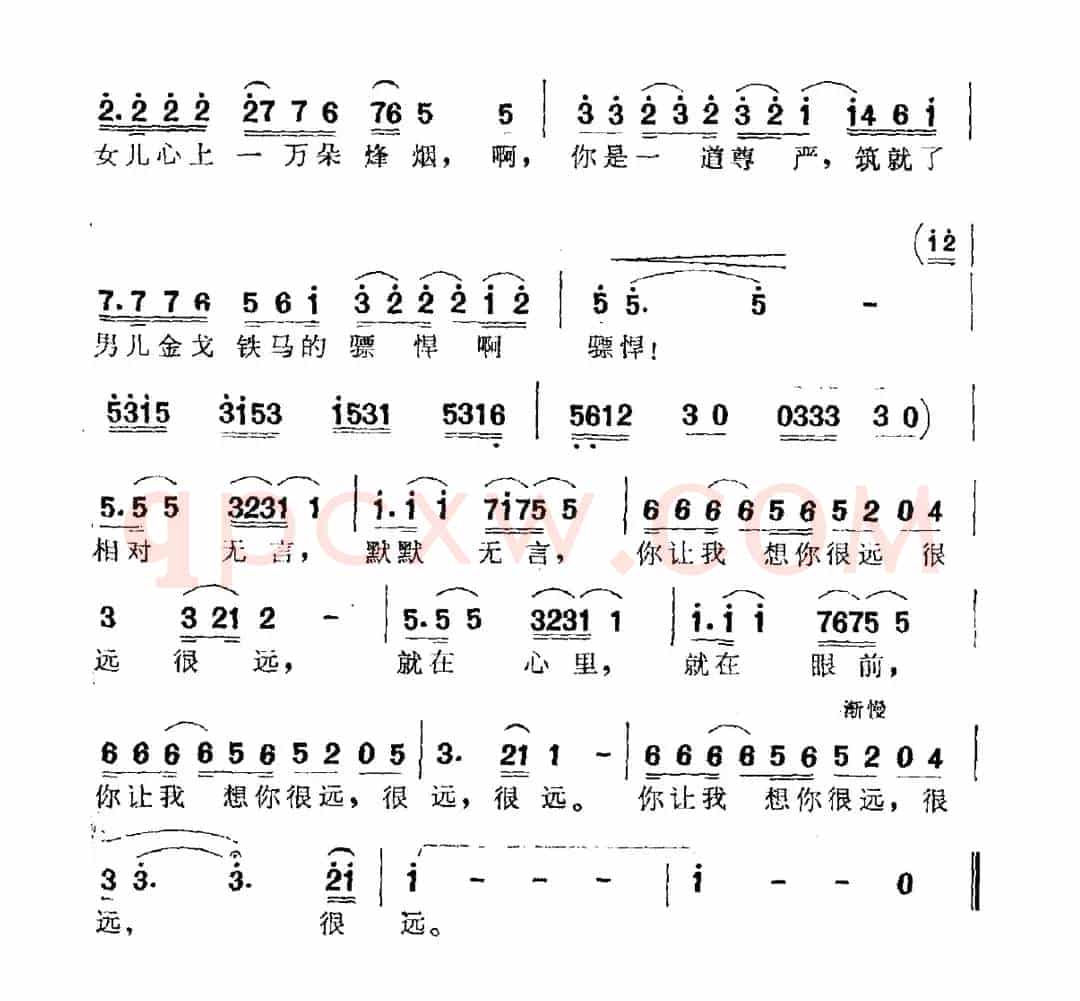 2.222 27 7 6 76 5 5 | 3 3 2 3 2 3 2 1 1461 |
女儿心上 一万朵 烽烟，啊，你是一 道尊 严，筑就了
(12 |
7.776 561 3 2 2 2 1 2 | 5 5. 5 -
男儿金戈 铁马的骠 悍啊 骠悍！
5315 3153 1531 5316 | 5612 30 0333 30) |
5.55 3231 1 | 1.11 7175 5 | 6 6 6 6 5 6 5 2 0 4 |
相对 无言，默默 无言，你让我 想你很远 很
qpcxw.com
3 3 21 2 - | 5.55 3231 1 | 1.11 7675 5 |
远 很 远，就在 心里，就在 眼前，
渐慢
6 6 6 6 5 6 5 2 0 5 | 3. 21 1 - | 6 6 6 6 5 6 5 2 0 4 |
你让我 想你很远，很 远，很远。你让我 想你很远，很
3 3. 3. 21 | 1 - - - | 1 - - 0 ‖
远，很 远。